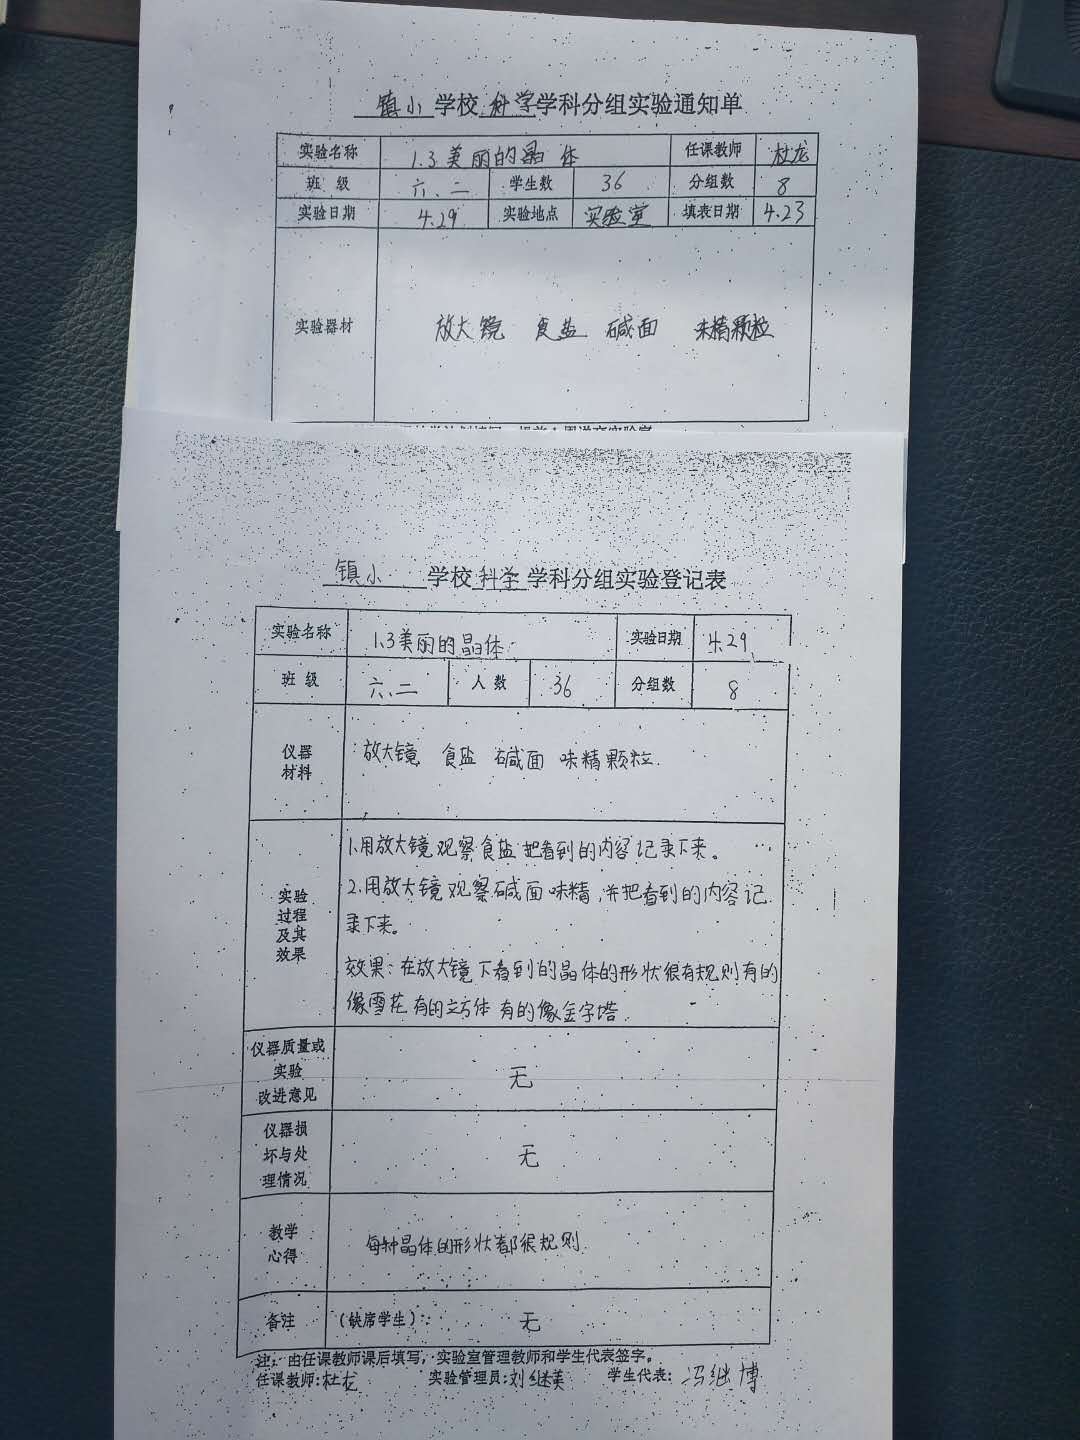 镇小 学校 科学 学科分组实验通知单
实验名称 1.3美丽的晶体 任课教师 杜龙
班 级 六.二 学生数 36 分组数 8
实验日期 4.29 实验地点 实验室 填表日期 4.23
实验器材 放大镜 食盐 碱面 味精颗粒
镇小 学校 科学 学科分组实验登记表
实验名称 1.3美丽的晶体 实验日期 4.29
班 级 六.二 人 数 36 分组数 8
仪器
材料
放大镜 食盐 碱面 味精颗粒
实验
过程
及其
效果
1.用放大镜观察食盐把看到的内容记录下来。
2.用放大镜观察碱面味精,并把看到的内容记
录下来。
效果:在放大镜下看到的晶体的形状很有规则有的
像雪花 有的立方体 有的像金字塔.
仪器质量或
实验
改进意见
无
仪器损
坏与处
理情况
无
教学
心得
每种晶体的形状都很规则.
备注 (缺席学生): 无
注:由任课教师课后填写,实验室管理教师和学生代表签字。
任课教师:杜龙 实验管理员:刘继美 学生代表:冯继博